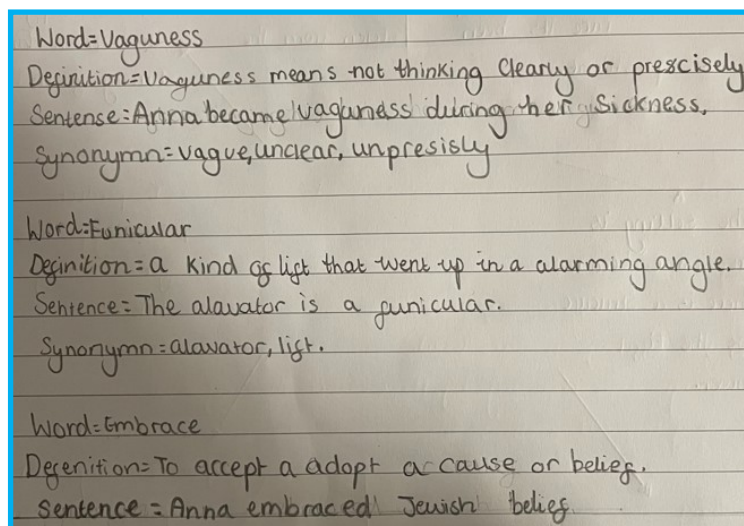 Word=Vaguness
Definition=Vaguness means not thinking Clearly or prescisely
Sentense=Anna became vaguness during her Sickness.
Synonymn=vague,unclear, unpresisly
Word=Funicular
Definition=a kind of lift that went up in a alarming angle.
Sentence=The alavator is a funicular.
Synonymn=alavator, lift.
Word=Embrace
Defenition=To accept a adopt a cause or belief.
Sentence=Anna embraced Jewish belief